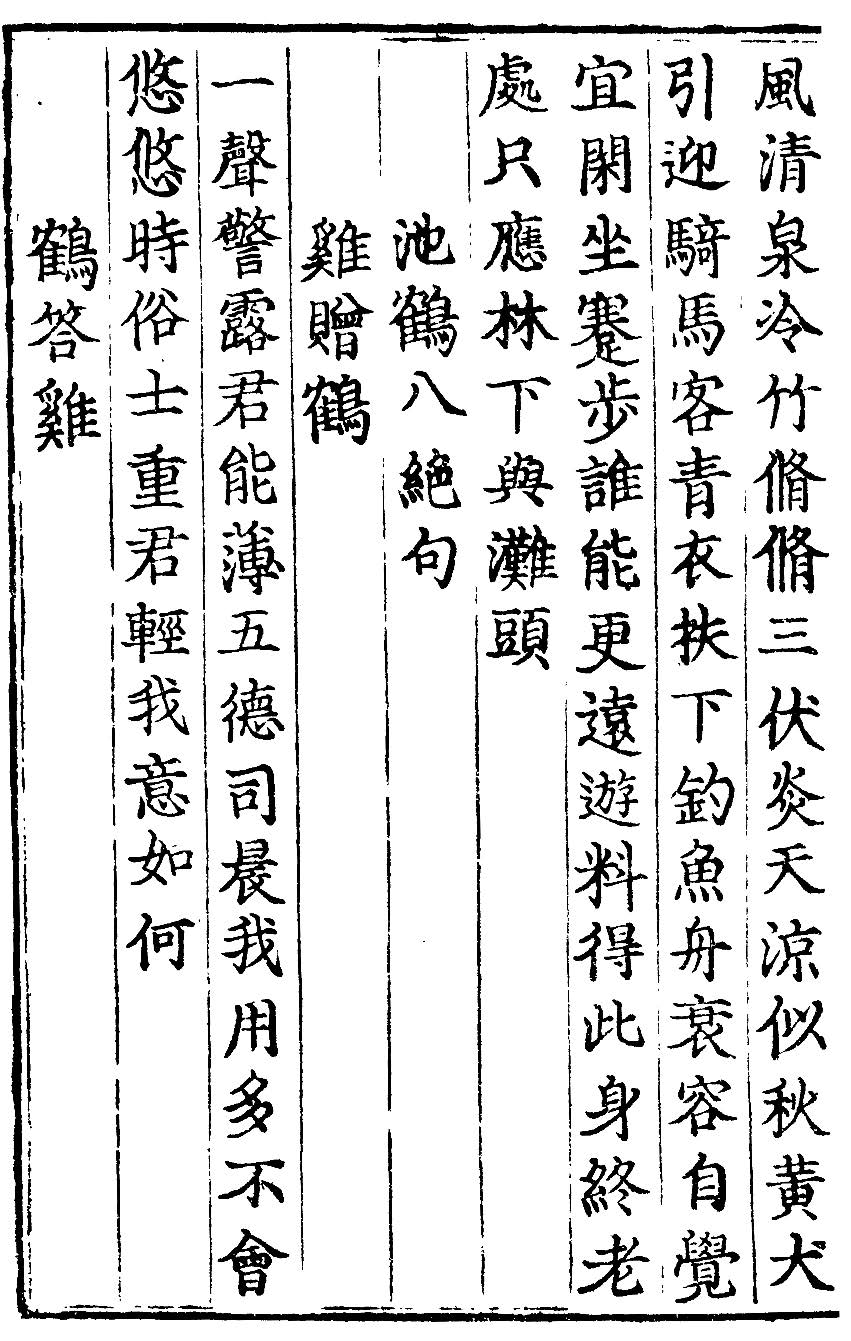 風清泉冷竹脩脩三伏炎天涼似秋黃犬
引迎騎馬客青衣扶下釣魚舟衰容自覺
宜閑坐蹇步誰能更遠遊料得此身終老
處只應林下與灘頭
池鶴八絕句
雞贈鶴
一聲警露君能薄五德司晨我用多不會
悠悠時俗士重君輕我意如何
鶴答雞